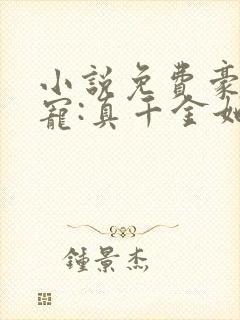 小説免費豪
寵:真千金她
鍾景杰